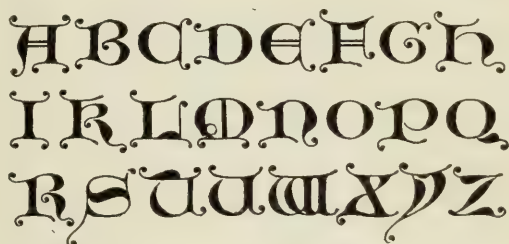 A B C D E F G H
I K L M N O P Q
R S T U W X Y Z